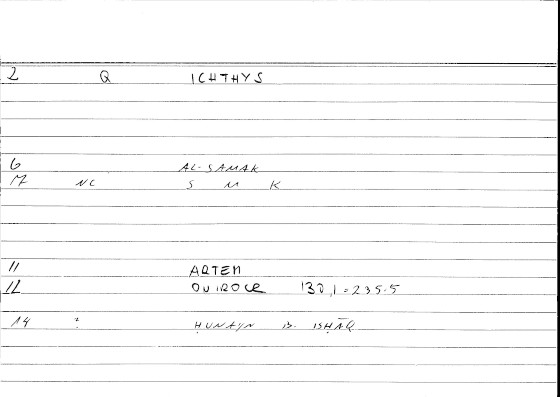 2 Q ICHTHYS
6 AL-SAMAK
17 NC S M K
11 ARTEM
12 ONIROCR 130,1=235.5
14 : ḤUNAYN B. ISḤĀQ